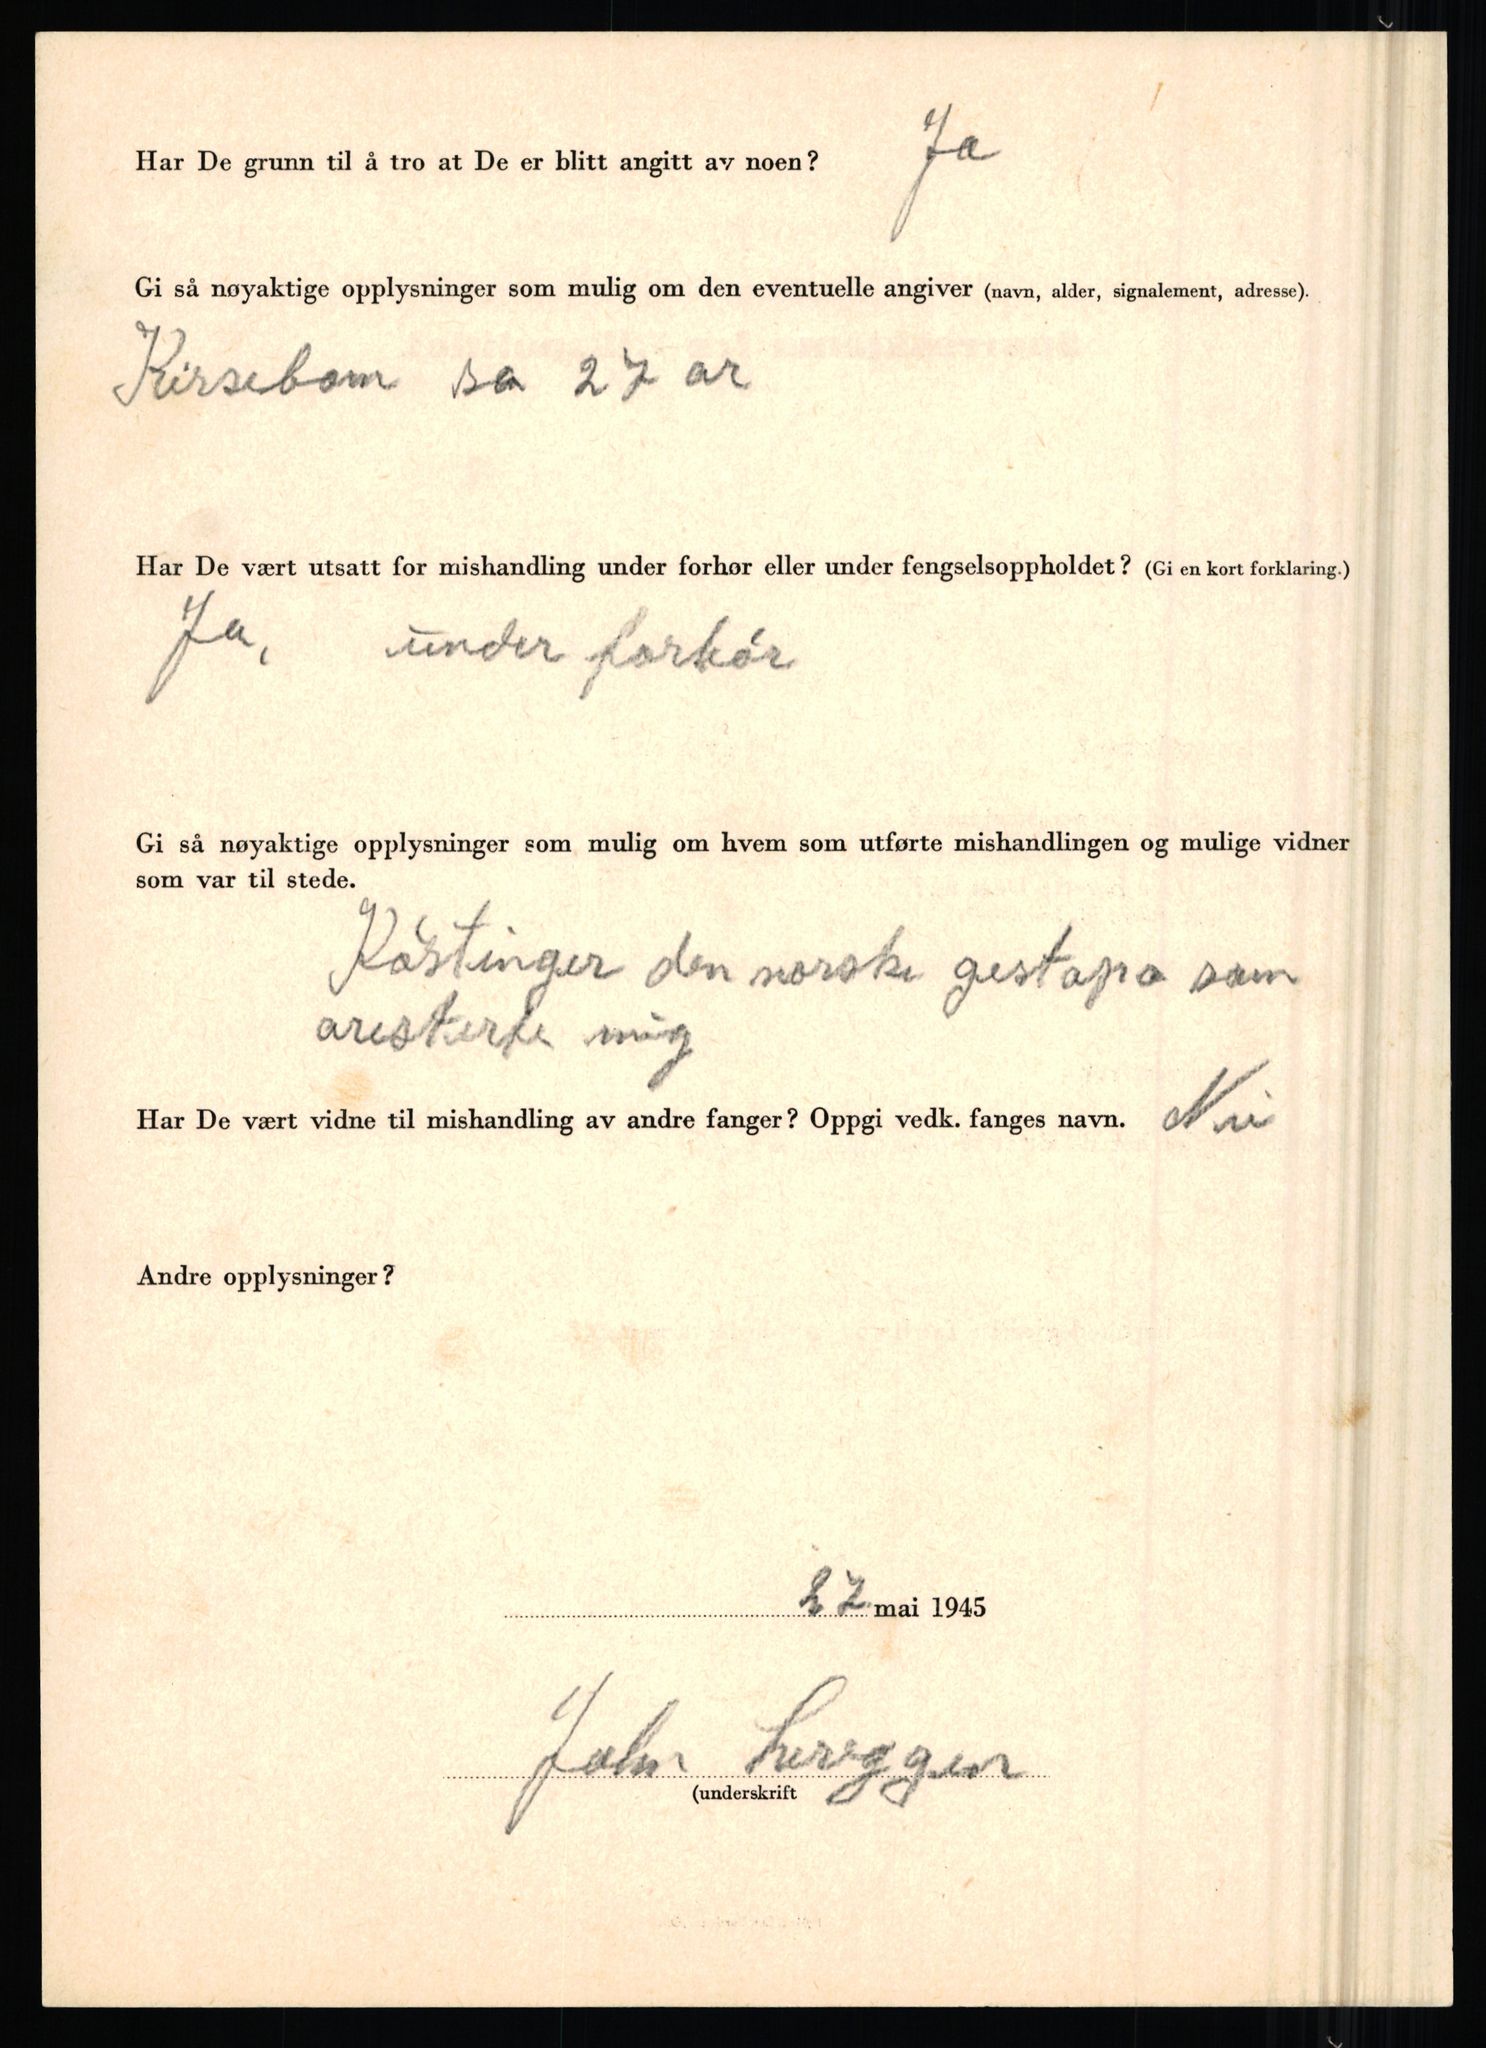 Har De grunn til å tro at De er blitt angitt av noen? Ja
Gi så nøyaktige opplysninger som mulig om den eventuelle angiver (navn, alder, signalement, adresse).
Kirsebom sa 27 ar
Har De vært utsatt for mishandling under forhør eller under fengselsoppholdet? (Gi en kort forklaring.)
Ja, under forhór
Gi så nøyaktige opplysninger som mulig om hvem som utførte mishandlingen og mulige vidner
som var til stede.
Köstinger den norske gestapo som
aresterte mig
Har De vært vidne til mishandling av andre fanger? Oppgi vedk. fanges navn. Nei
Andre opplysninger?
27 mai 1945
John
(underskrift